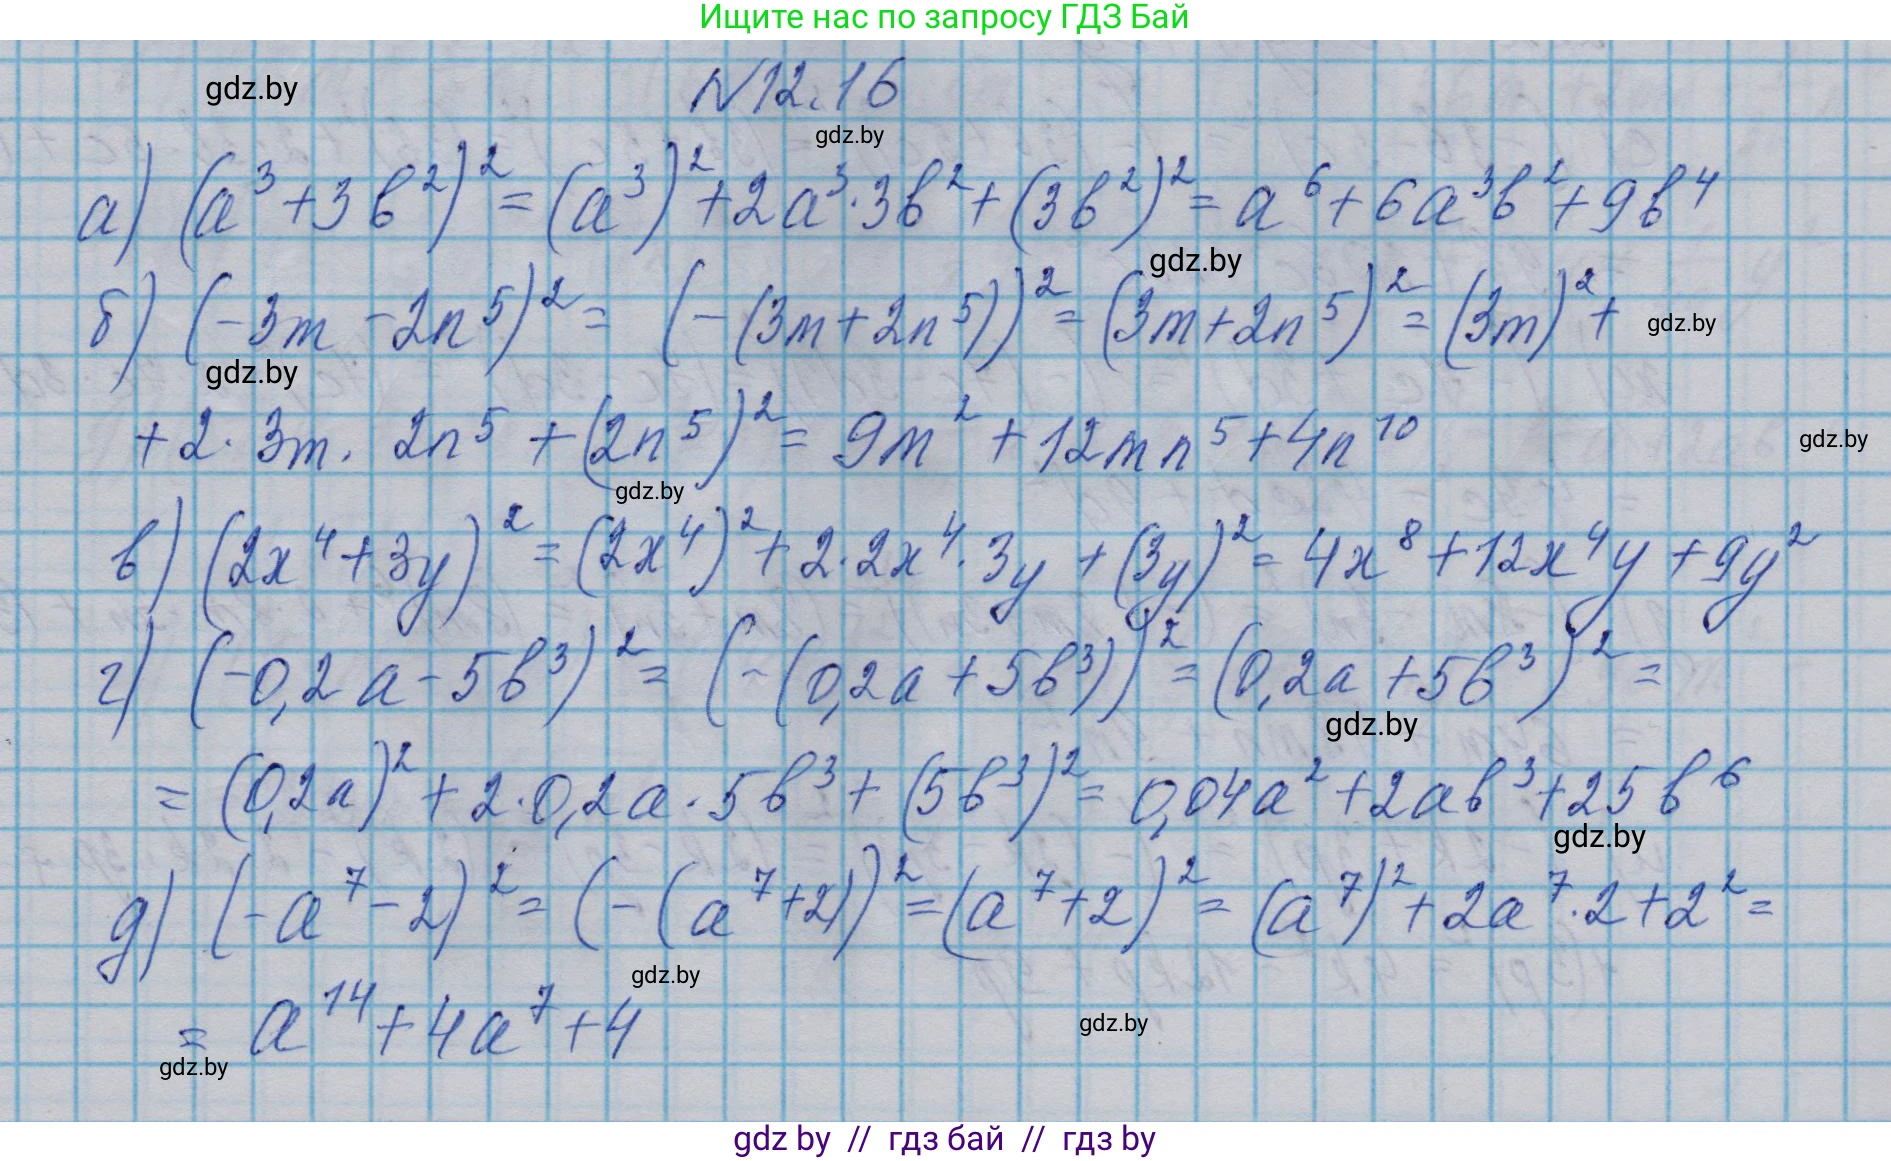 Ищите нас по запросу ГДЗ Бай
gdz.by
N12.16
gdz.by
а) (a³+3b²)²=(a³)²+2a³·3b²+(3b²)²=a⁶+6a³b²+9b⁴
gdz.by
б) (-3m-2n⁵)²= (-(3m+2n⁵))²=(3m+2n⁵)²=(3m)²+
gdz.by
gdz.by
+2·3m·2n⁵+(2n⁵)²=9m²+12mn⁵+4n¹⁰
gdz.by
gdz.by
в) (2x⁴+3y)²=(2x⁴)²+2·2x⁴·3y+(3y)²=4x⁸+12x⁴y+9y²
г) (-0,2a-5b³)²= (-(0,2a+5b³))²=(0,2a+5b³)²=
gdz.by
=(0,2a)²+2·0,2a·5b³+(5b³)²=0,04a²+2ab³+25b⁶
gdz.by
д) (-a⁷-2)²=(-(a⁷+2))²=(a⁷+2)²=(a⁷)²+2a⁷·2+2²=
gdz.by
=a¹⁴+4a⁷+4
gdz.by
gdz.by
gdz by // гдз бай // гдз by